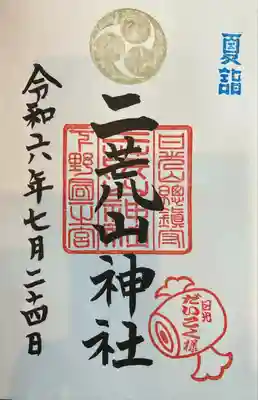 夏詣
日光山總鎮守
二荒山神社
下野國一宮
日光
だいこく様
令和六年七月二十四日